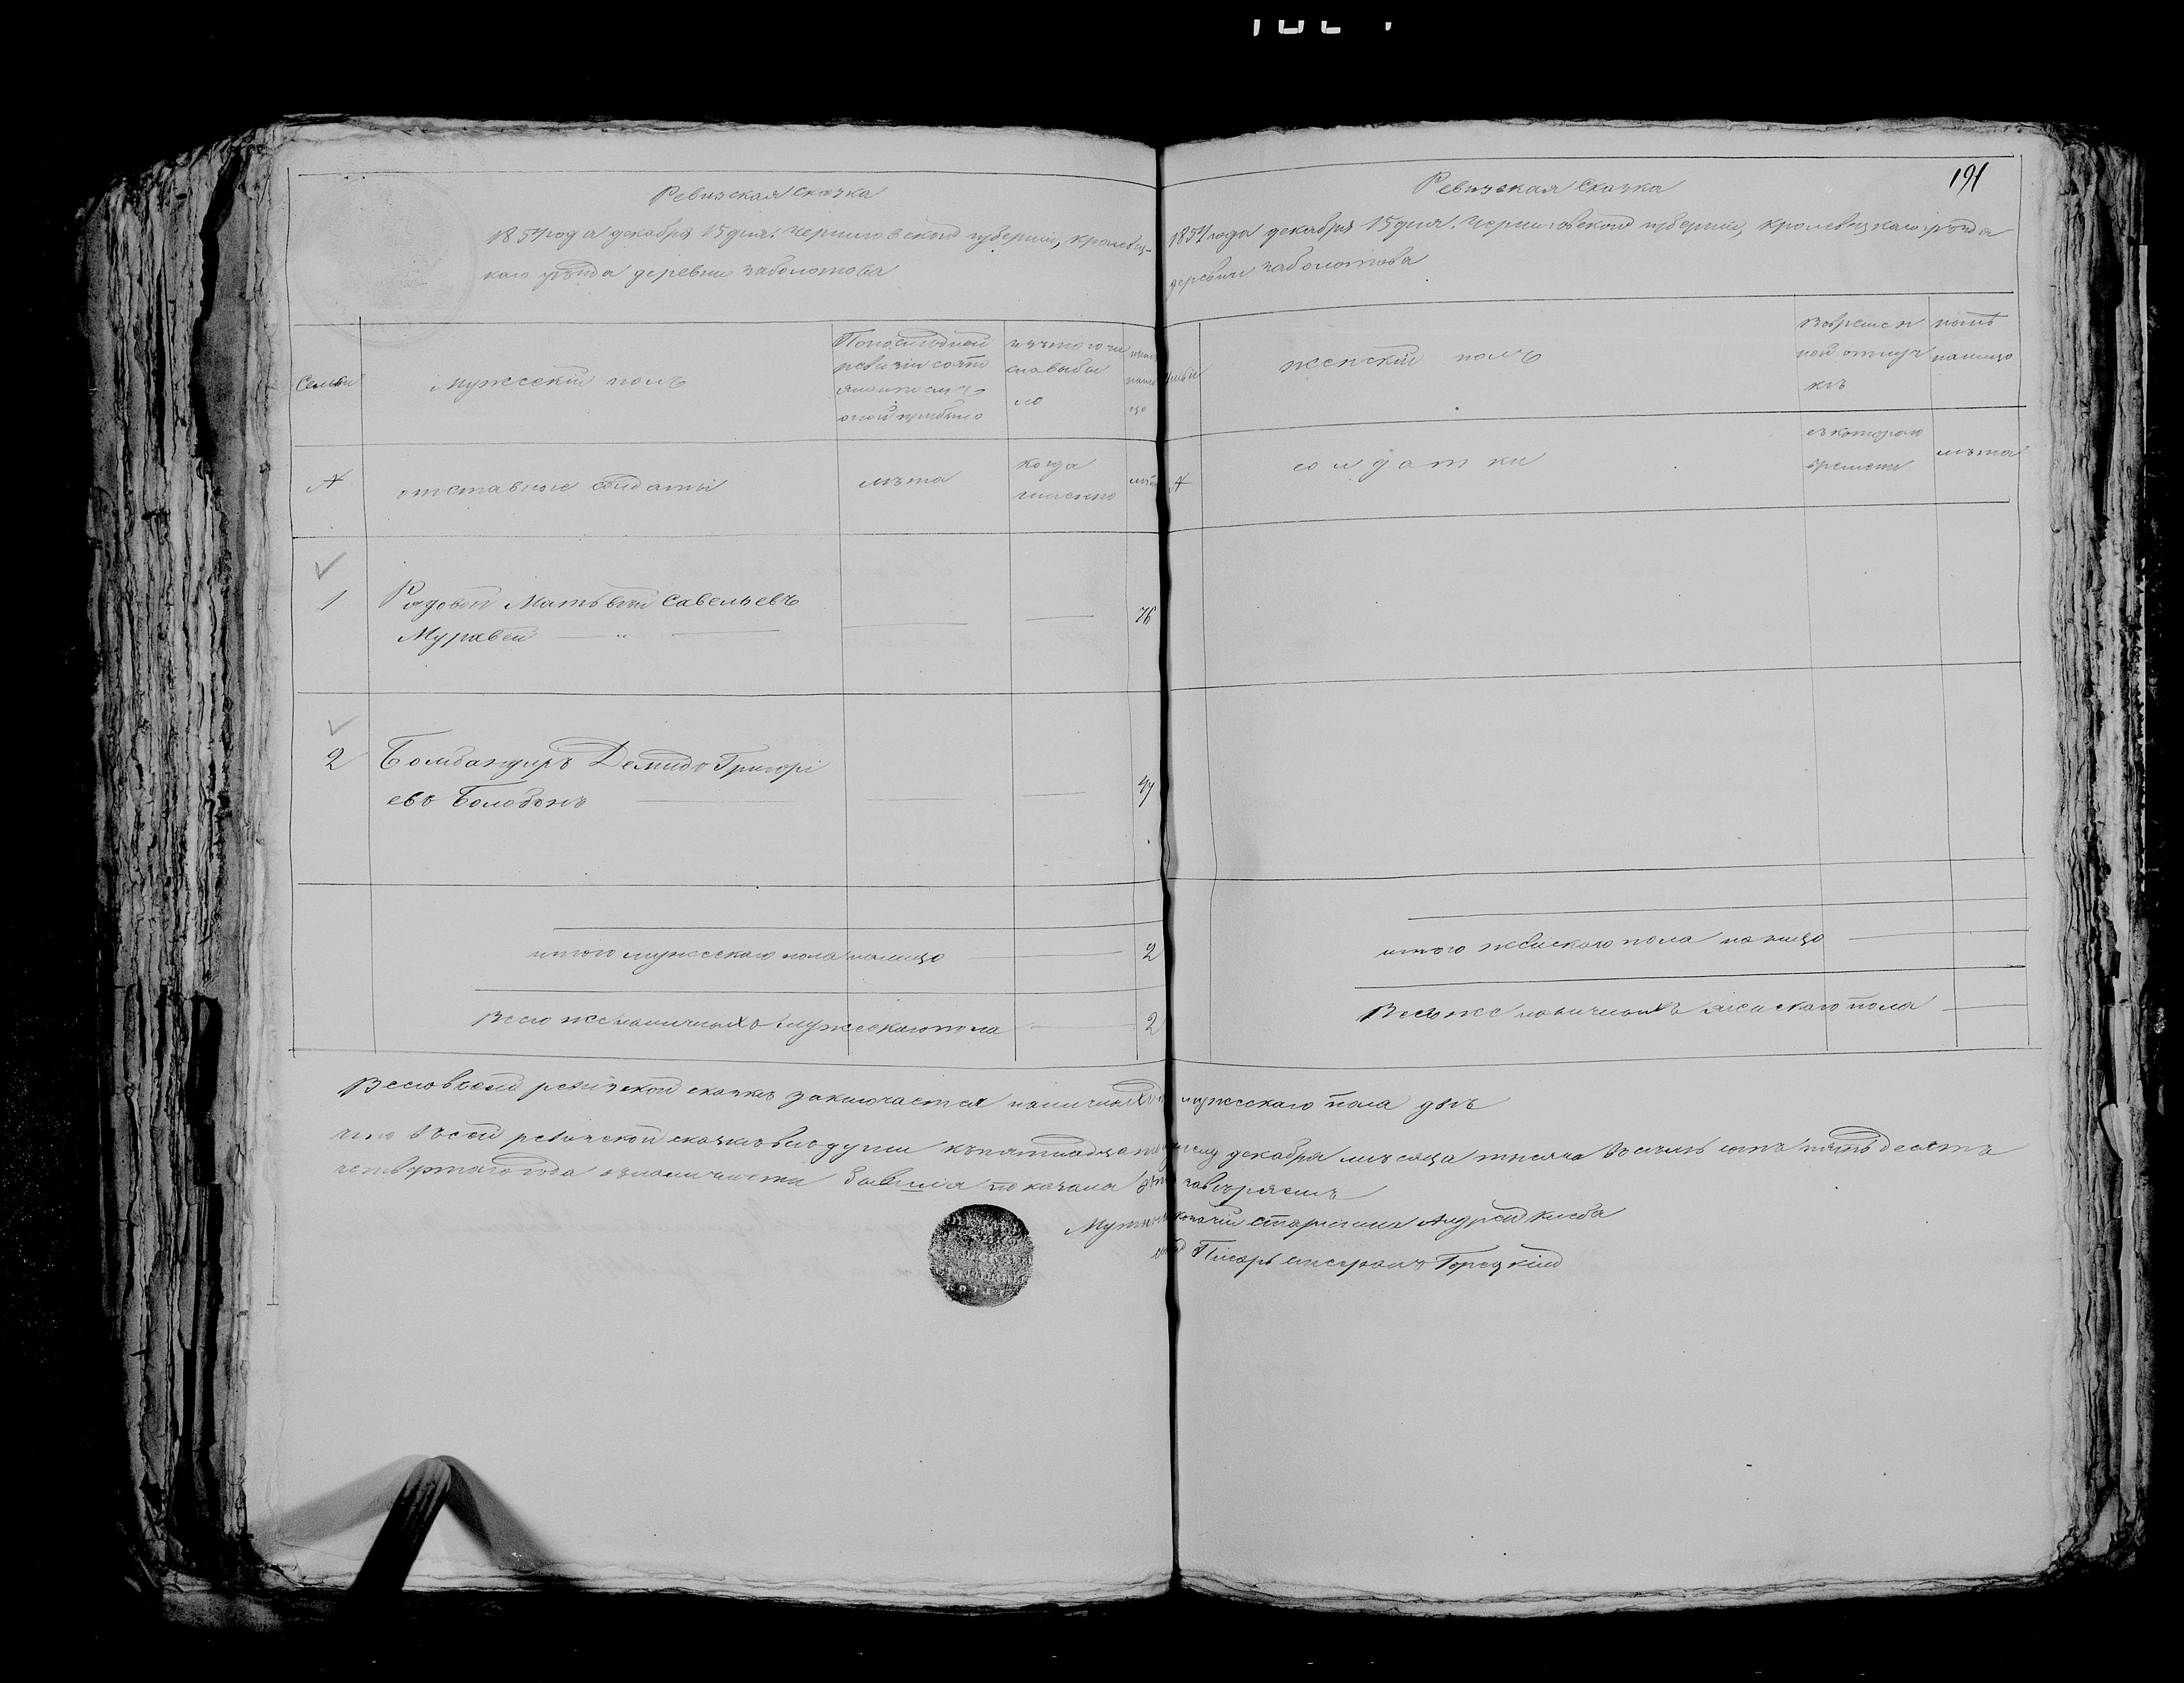 191
Ревизская сказка
1854 года декабря 15 дня. Черниговской губернии, кролевец-
каго уѣзда деревни заболотова
семьи
Мужеский полъ
По последней
ревизіи состо
яло и после
оной прибыло
изъ того чи
сла выбы
ло
ныне
на ли
цо
№
отставные солдаты
лѣта
когда
именно
лѣта
1
Рядовой Матвѣй Савельевъ
Муравей
76
2
Бомбандиръ Демидъ Григорі
евъ Болобанъ
47
итого мужескаго пола налицо
2
Всего же наличныхъ мужескаго пола
2
Ревизская Сказка
1854 года декабря 15 дня. Черниговской губерній, кролевецкаго уѣзда
деревни заболотова
семьи
женскій полъ
Во времен
ной отлуч
кѣ
ныне
налицо
№
солдатки
съ котораго
времени
лѣта
итого женскаго пола на лицо
Всего же наличныхъ женскаго пола
Всего в сей ревизской сказкѣ заключается наличныхъ мужескаго пола двѣ
что въ сей ревизской сказкѣ все души къ пятнадцатому числу декабря мѣсяца тысяча восемь сотъ пятьдесятъ
четвертаго года въ наличности бывшія показаны въ томъ завѣряемъ
козачій старшина Андрей Кисба
Писарь унтеръ Горецкій